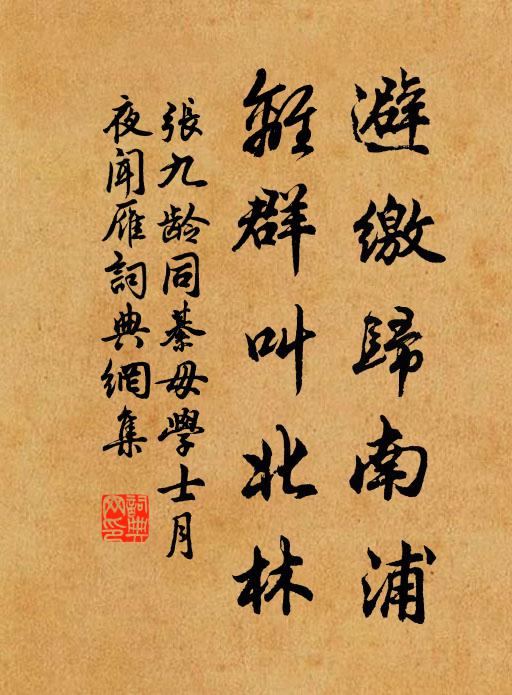 避繳歸南浦
離群叫北林
張九齡同綦毋學士月
夜闻雁詞典網集
詞典网印